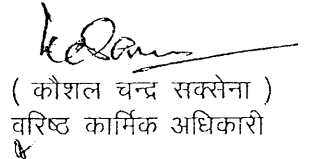 ( कौशल चन्द्र सक्सेना )
वरिष्ठ कार्मिक अधिकारी